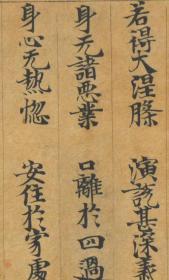 若得大涅槃 演說甚深義
身无諸惡業 口離於四過
身心无熱惱 安住於寂處